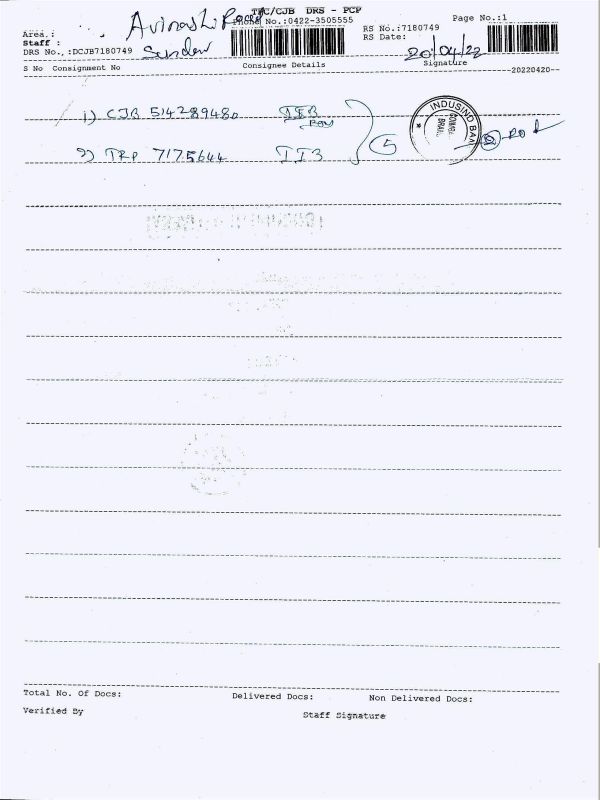 TPC/CJB DRS - PCP
Page No.:1
Area.:
Avinashi Road
Phone No.:0422-3505555
RS No.:7180749
Staff :
RS Date:
20/04/22
DRS No.,:DCJB7180749
Sundar
Signature
S No Consignment No
Consignee Details
--20220420--
1) CJB 514289480 IIB
2) TRP 7175644 IIB
5
INDUSIND BAN
Total No. Of Docs:
Delivered Docs:
Non Delivered Docs:
Verified By
Staff Signature